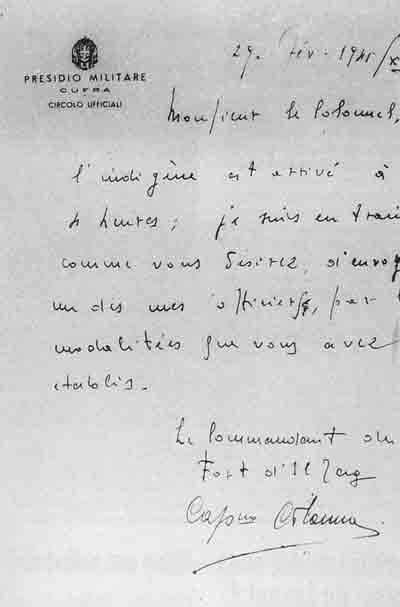 PRESIDIO MILITARE
CUFRA
CIRCOLO UFFICIALI
Monsieur le Colonel,
l'indigène est arrivé à
4 heures; je suis en train
comme vous desirez, d'envoy
un des mes officiers, par l
modalitées que vous avez
etablis.
Le Commandant du
Fort d'El Tag
Colonna